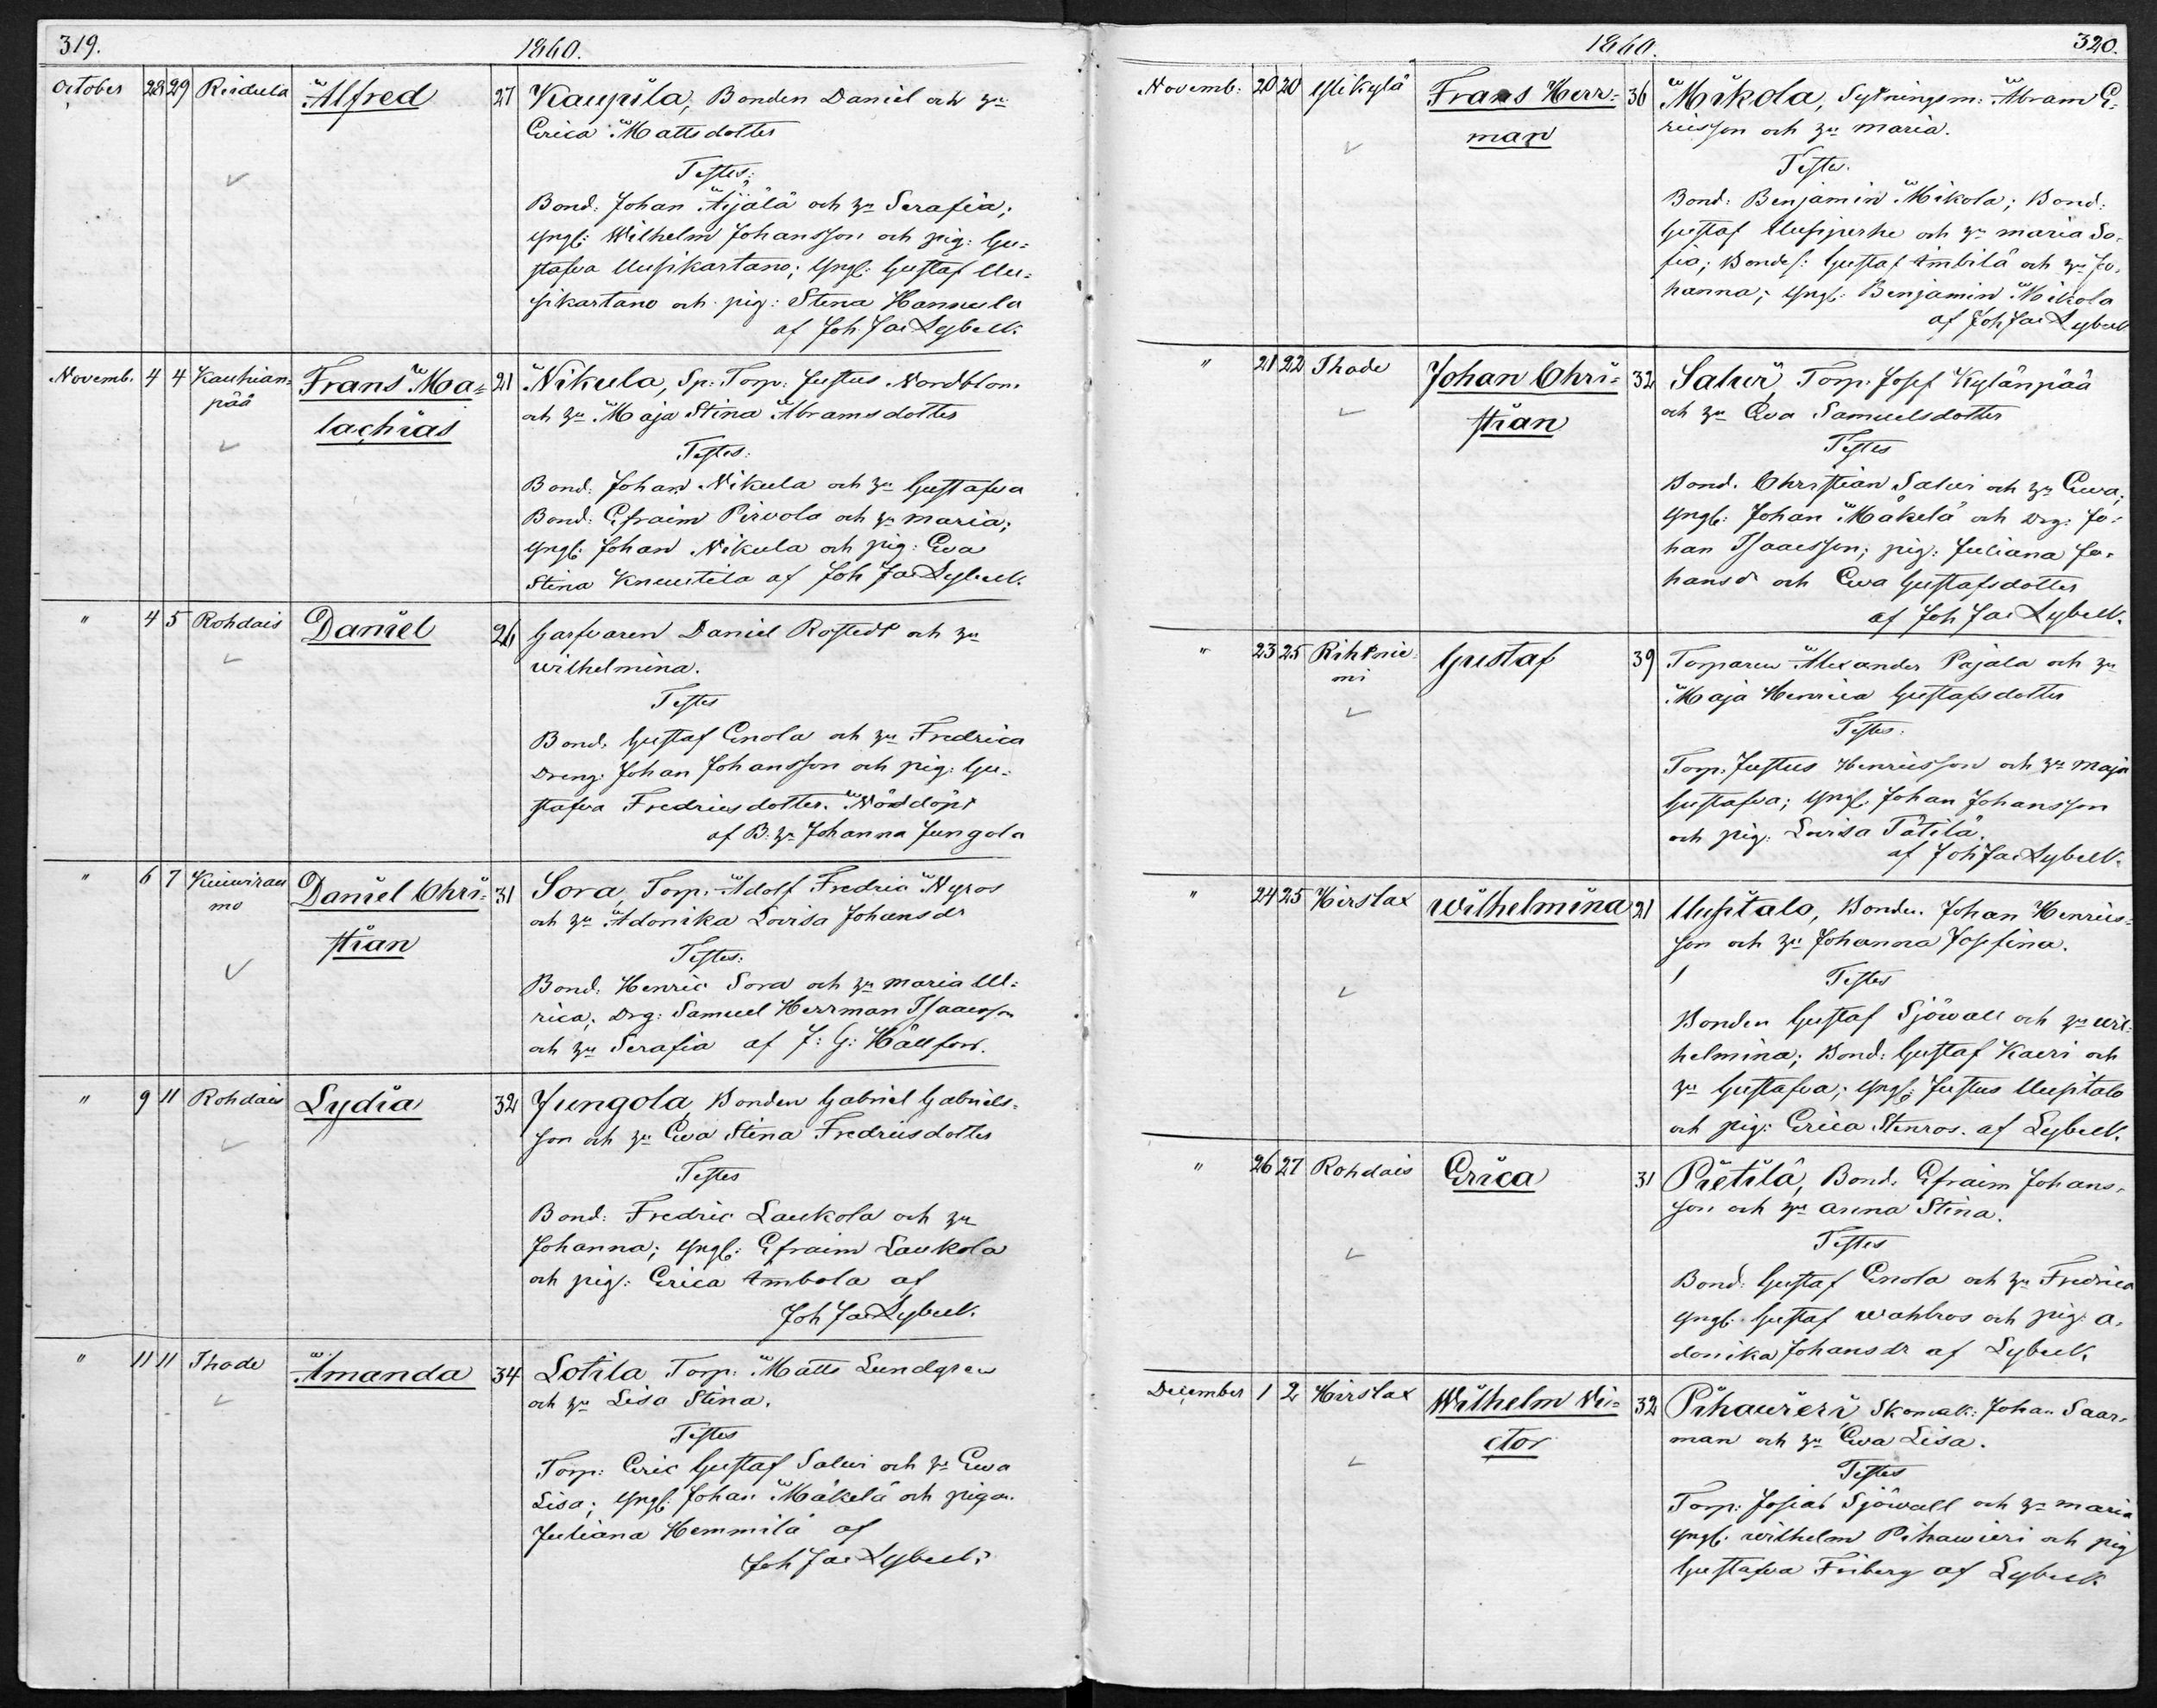 319.
1860.
October 28 29 Riidula Alfred 27 Kaupila, Bonden Daniel och hu
Erica Mattsdotter
Testes:
Bond: Johan Äijälä och hu Serafia;
yngl: Wilhelm Johansson och pig: Gu=
stafva Uusikartano; yngl: Gustaf Uu=
sikartano och pig: Stina Hannula
af Joh Jac Lybeck.
Novemb. 4 4 Kauhian= Frans Ma= 21 Nikula, Sp: Torp: Justus Nordblom
pää lachias och hu Maja Stina Abramsdotter
Testes:
Bond: Johan Nikula och hu Gustafva
Bond: Efraim Pirvola och hu Maria;
yngl: Johan Nikula och pig: Eva
Stina Knuutila af Joh Jac Lybeck.
" 4 5 Rohdais Daniel 26 Garfvaren Daniel Rostedt och hu
Wilhelmina.
Testes
Bond. Gustaf Enola och hu Fredrica
Dreng: Johan Johansson och pig: Gu=
stafva Fredricsdotter. Nöddöpt
af B: hu Johanna Jungola
" 6 7 Kuiwirau Daniel Chri= 31 Sora, Torp: Adolf Fredric Nyros
mo stian och hu Adonika Lovisa Johansdr
Testes:
Bond: Henric Sora och hu Maria Ul=
rica; Drg: Samuel Herrman Isaacsson
och hu Serafia af J: G: Hällfors.
" 9 11 Rohdais Lydia 32 Jungola, Bonden Gabriel Gabriels=
son och hu Eva Stina Fredricsdotter
Testes
Bond: Fredric Laukola och hu
Johanna; yngl: Efraim Laukola
och pig: Erica Imbola af
Joh Jac Lybeck.
" 11 11 Ihode Amanda 34 Lotila Torp: Matts Lundgren
och hu Lisa Stina.
Testes
Torp: Eric Gustaf Salwi och hu Ewa
Lisa; yngl: Johan Mäkelä och pigan
Juliana Hemmilä af
Joh Jac Lybeck.
1860.
320.
Novemb: 20 20 Ylikylä Frans Herr= 36 Mikola, Sytningsm: Abram E=
man ricsson och hu Maria.
Testes.
Bond: Benjamin Mikola; Bond:
Gustaf Uusiperhe och hu Maria So=
fia; Bonds: Gustaf Imbilä och hu Jo=
hanna; yngl: Benjamin Mikola
af Joh Jac Lybeck
" 21 22 Ihode Johan Chri= 32 Salwi, Torp. Josef Kylänpää
stian och hu Eva Samuelsdotter
Testes
Bond. Christian Salwi och hu Ewa;
yngl: Johan Mäkelä och Drg: Jo=
han Isaacsson; pig: Juliana Jo=
hansdr och Ewa Gustafsdotter
af Joh Jac Lybeck.
" 23 25 Rihtnie= Gustaf 39 Torparen Alexander Pajala och hu
mi Maja Henrica Gustafsdotter
Testes:
Torp. Justus Henricsson och hu Maja
Gustafva; yngl. Johan Johansson
och pig: Lovisa Tätilä.
af Joh Jac Lybeck.
" 24 25 Hirslax Wilhelmina 21 Uusitalo, Bonden Johan Henrics=
son och hu Johanna Josefina.
Testes
Bonden Gustaf Sjöwall och hu Wil=
helmina; Bond: Gustaf Kaeri och
hu Gustafva; yngl: Justus Uusitalo
och pig: Erica Stenros. af Lybeck.
" 26 27 Rohdais Erica 31 Pietilä, Bond. Efraim Johans=
son och hu Anna Stina.
Testes
Bond: Gustaf Enola och hu Fredrica
yngl: Gustaf Wahlros och pig: A=
donika Johansdr af Lybeck.
December 1 2 Hirslax Wilhelm Vi= 32 Pihawieri, Skomak: Johan Saar=
ctor man och hu Ewa Lisa.
Testes
Torp: Josias Sjöwall och hu Maria
yngl: Wilhelm Pihawieri och pig
Gustafva Friberg af Lybeck